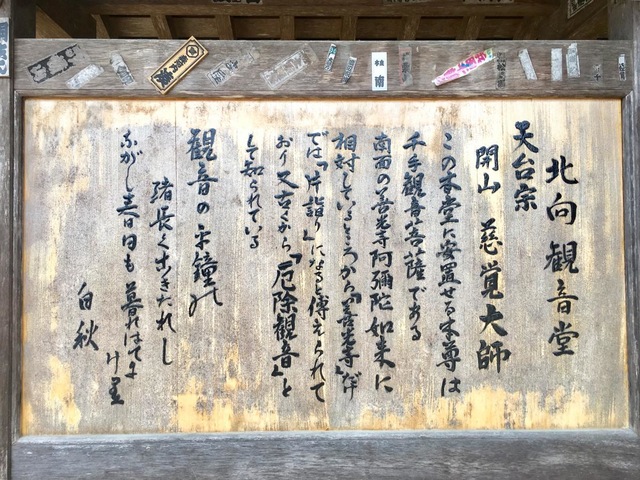 北向観音堂
天台宗
開山 慈覚大師
この本堂に安置せる本尊は
千手観音菩薩である
南面の善光寺阿弥陀如来に
相対しているところから「善光寺」だけ
では「片詣り」になると傳えられて
おり又古くから「厄除観音」と
して知られている
観音の
緒長くひきたれし
ながし春日も暮れはてに
けり
白秋